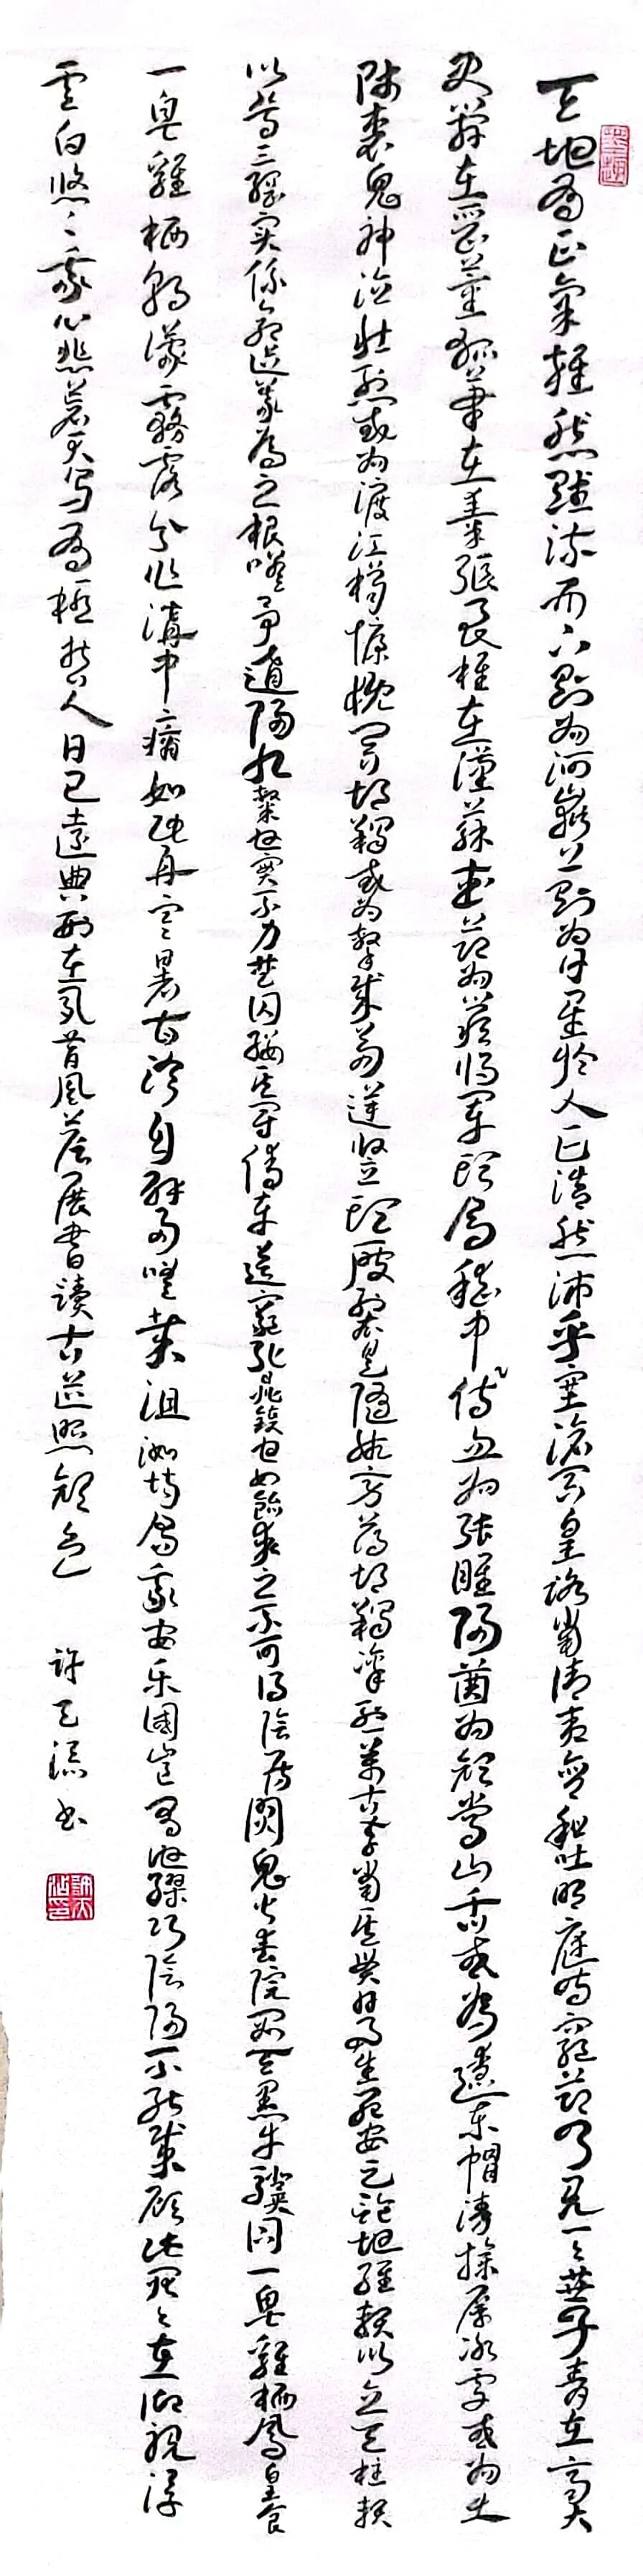 天地有正氣雜然賦流形下則為河嶽上則為日星於人曰浩然沛乎塞滄冥皇路當清夷含和吐明庭時窮節乃見一々垂丹青在齊太
史簡在晉董狐筆在秦張良椎在漢蘇武節為嚴將軍頭為嵇中侍血為張睢陽齒為顏常山舌或為遼東帽清操厲冰雪或為出
師表鬼神泣壯烈或為渡江楫慷慨吞胡羯或為擊賊笏逆豎頭破裂是氣所旁薄胡羯凜烈萬古存當其貫日月生死安足論地維賴以立天柱賴
以尊三綱实係命道義為之根嗟予遘陽九隸也實不力楚囚纓其冠傳車送窮北鼎鑊甘如飴求之不可得陰房闃鬼火春院閟天黑牛驥同一皂雞栖鳳皇食
一皂雞栖朝濛霧露分作溝中瘠如此再寒暑百沴自辟易嗟哉沮洳場為我安乐國豈有他繆巧陰陽不能賊顧此耿々在仰視浮
雲白悠々我心悲蒼天曷有極哲人日已遠典刑在夙昔風簷展書讀古道照顏色
許天 书